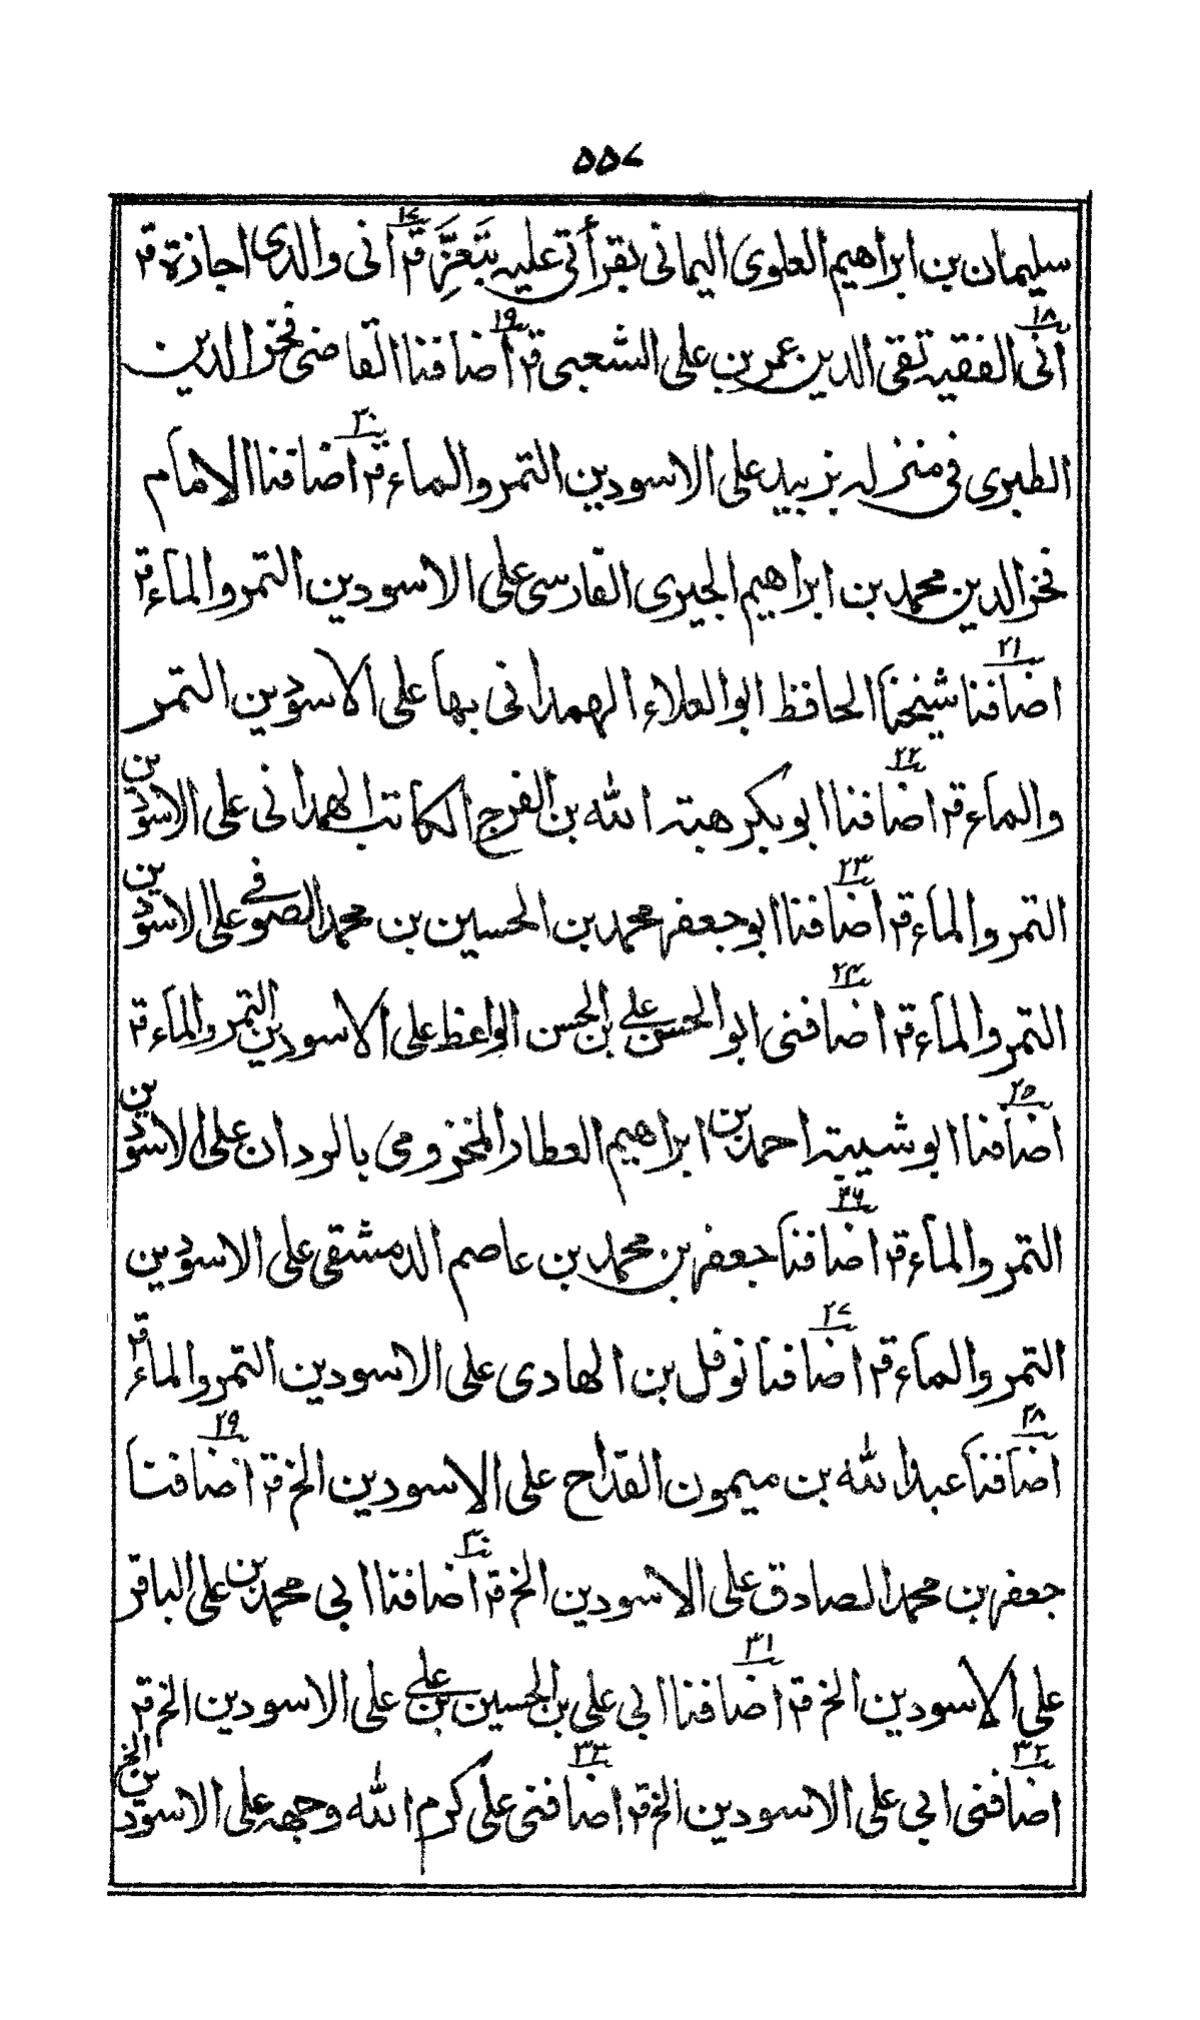 ٥٥٧
سلیمان بن ابراهیم العلوی الیمانی بقرأتی علیه بتَعِزَّ قٓ ١٧ انی والدی اجازة قٓ
١٨ انی الفقیه تقی الدین عمر بن علی الشعبی قٓ ١٩ اضافنا القاضی فخر الدین
الطبری فی منزله بزبید علی الاسودین التمر والماء قٓ ٢٠ اضافنا الامام
فخر الدین محمد بن ابراهیم الجبری الفارسی علی الاسودین التمر والماء قٓ
٢١ اضافنا شیخنا الحافظ ابو العلاء الهمدانی بها علی الاسودین التمر
والماء قٓ ٢٢ اضافنا ابو بکر هبة الله بن الفرج الکاتب الهمدانی علی الاسودین
التمر والماء قٓ ٢٣ اضافنا ابو جعفر محمد بن الحسین بن محمد الصوفی علی الاسودین
التمر والماء قٓ ٢٤ اضافنی ابو الحسن علی بن الحسن الواعظ علی الاسودین التمر والماء قٓ
٢٥ اضافنا ابو شیبة احمد بن ابراهیم العطار المخزومی بالردان علی الاسودین
التمر والماء قٓ ٢٦ اضافنا جعفر بن محمد بن عاصم الدمشقی علی الاسودین
التمر والماء قٓ ٢٧ اضافنا نوفل بن الهادی علی الاسودین التمر والماء قٓ
٢٨ اضافنا عبد الله بن میمون القداح علی الاسودین الخ قٓ ٢٩ اضافنا
جعفر بن محمد الصادق علی الاسودین الخ قٓ ٣٠ اضافنا ابی محمد بن علی الباقر
علی الاسودین الخ قٓ ٣١ اضافنا ابی علی بن الحسین بن علی علی الاسودین الخ قٓ
٣٢ اضافنی ابی علی الاسودین الخ قٓ ٣٣ اضافنی علی کرم الله وجهه علی الاسودین الخ